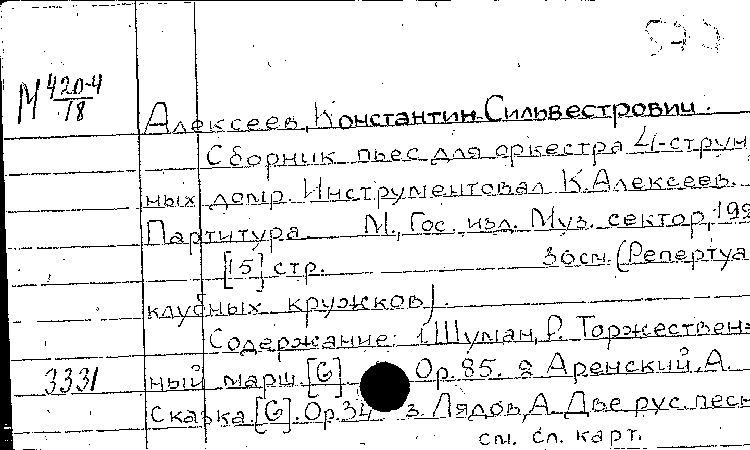 М 420-4
18
Алексеев, Константин Сильвестрович.
Сборник пьес для оркестра 4-струн
ных домр. Инструментовал К. Алексеев.
Партитура. М., Гос. изд. Муз. сектор,
[15] стр. 36см. (Репертуа
клубных кружков).
Содержание: 1 Шуман, Р. Торжествен=
3331 ный марш. [G] Ор. 85. 2 Аренский, А.
Сказка. [G]. Ор. 34 3. Лядов, А. Две рус. песн
см. сл. карт.